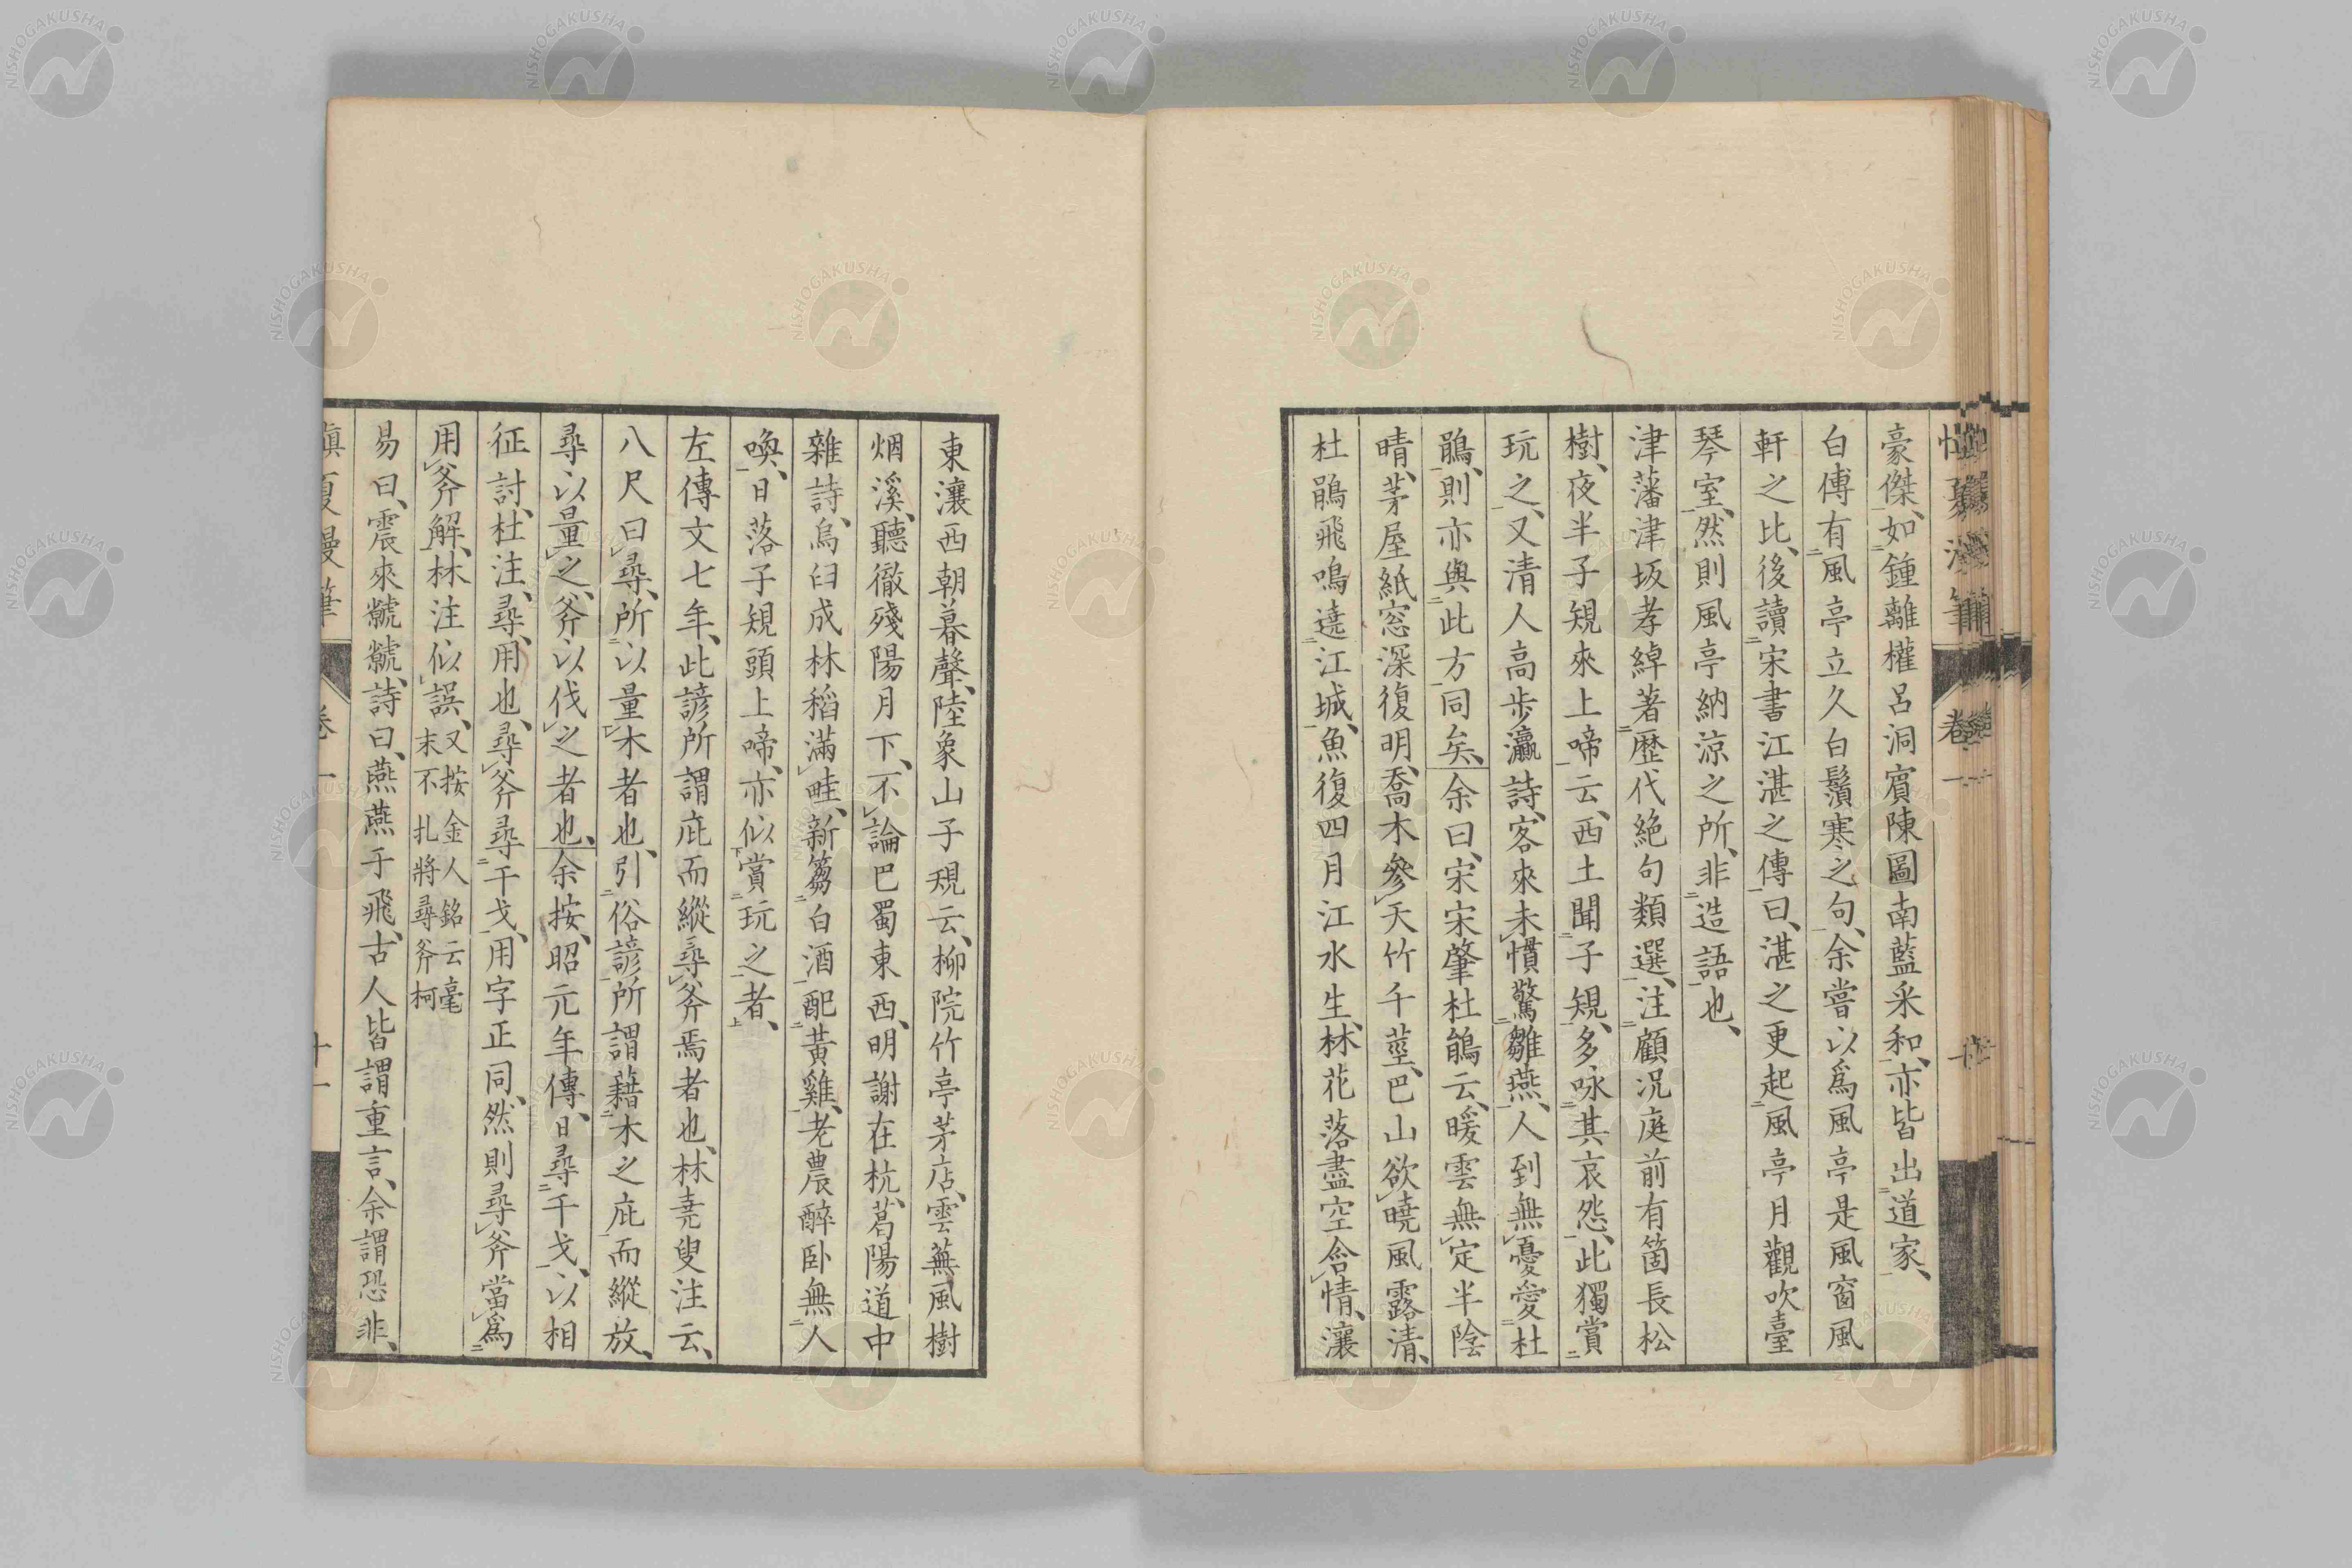 豪傑、如鍾離權呂洞賓陳圖南藍采和、亦皆出道家、
白傳有風亭立久白鬚寒之句、余嘗以爲風亭是風窗風
軒之比、後讀宋書江湛之傳曰、湛之更起風亭月觀吹臺
琴室、然則風亭納涼之所、非造語也、
津藩津坂孝綽著歷代絶句類選、注顧況庭前有箇長松
樹、夜半子規來上啼云、西土聞子規、多咏其哀怨、此獨賞
玩之、又清人高步瀛詩、客來未慣驚雛燕、人到無憂愛杜
鵑、則亦與此方同矣、余曰、宋宋肇杜鵑云、暖雲無定半陰
晴、茅屋紙窓深復明、喬木參天竹千莖、巴山欲曉風露清、
杜鵑飛鳴遶江城、魚復四月江水生、林花落盡空含情、瀼
東瀼西朝暮聲、陸象山子規云、柳院竹亭茅店、雲蕪風樹
烟溪、聽徹殘陽月下、不論巴蜀東西、明謝在杭、葛陽道中
雜詩、烏臼成林稻滿畦、新篘白酒配黃雞、老農醉卧無人
喚、日落子規頭上啼、亦似賞玩之者、
左傳文七年、此諺所謂庇而縱尋斧焉者也、林堯叟注云、
八尺曰尋、所以量木者也、引俗諺所謂藉木之庇而縱放、
尋以量之、斧以伐之者也、余按、昭元年傳、日尋干戈、以相
征討、杜注、尋、用也、尋斧尋干戈、用字正同、然則尋斧當爲
用斧解、林注似誤、又按金人銘云毫
末不扎將尋斧柯
易曰、震來虩虩、詩曰、燕燕于飛、古人皆謂重言、余謂恐非、
愼夏漫筆 卷一 十一